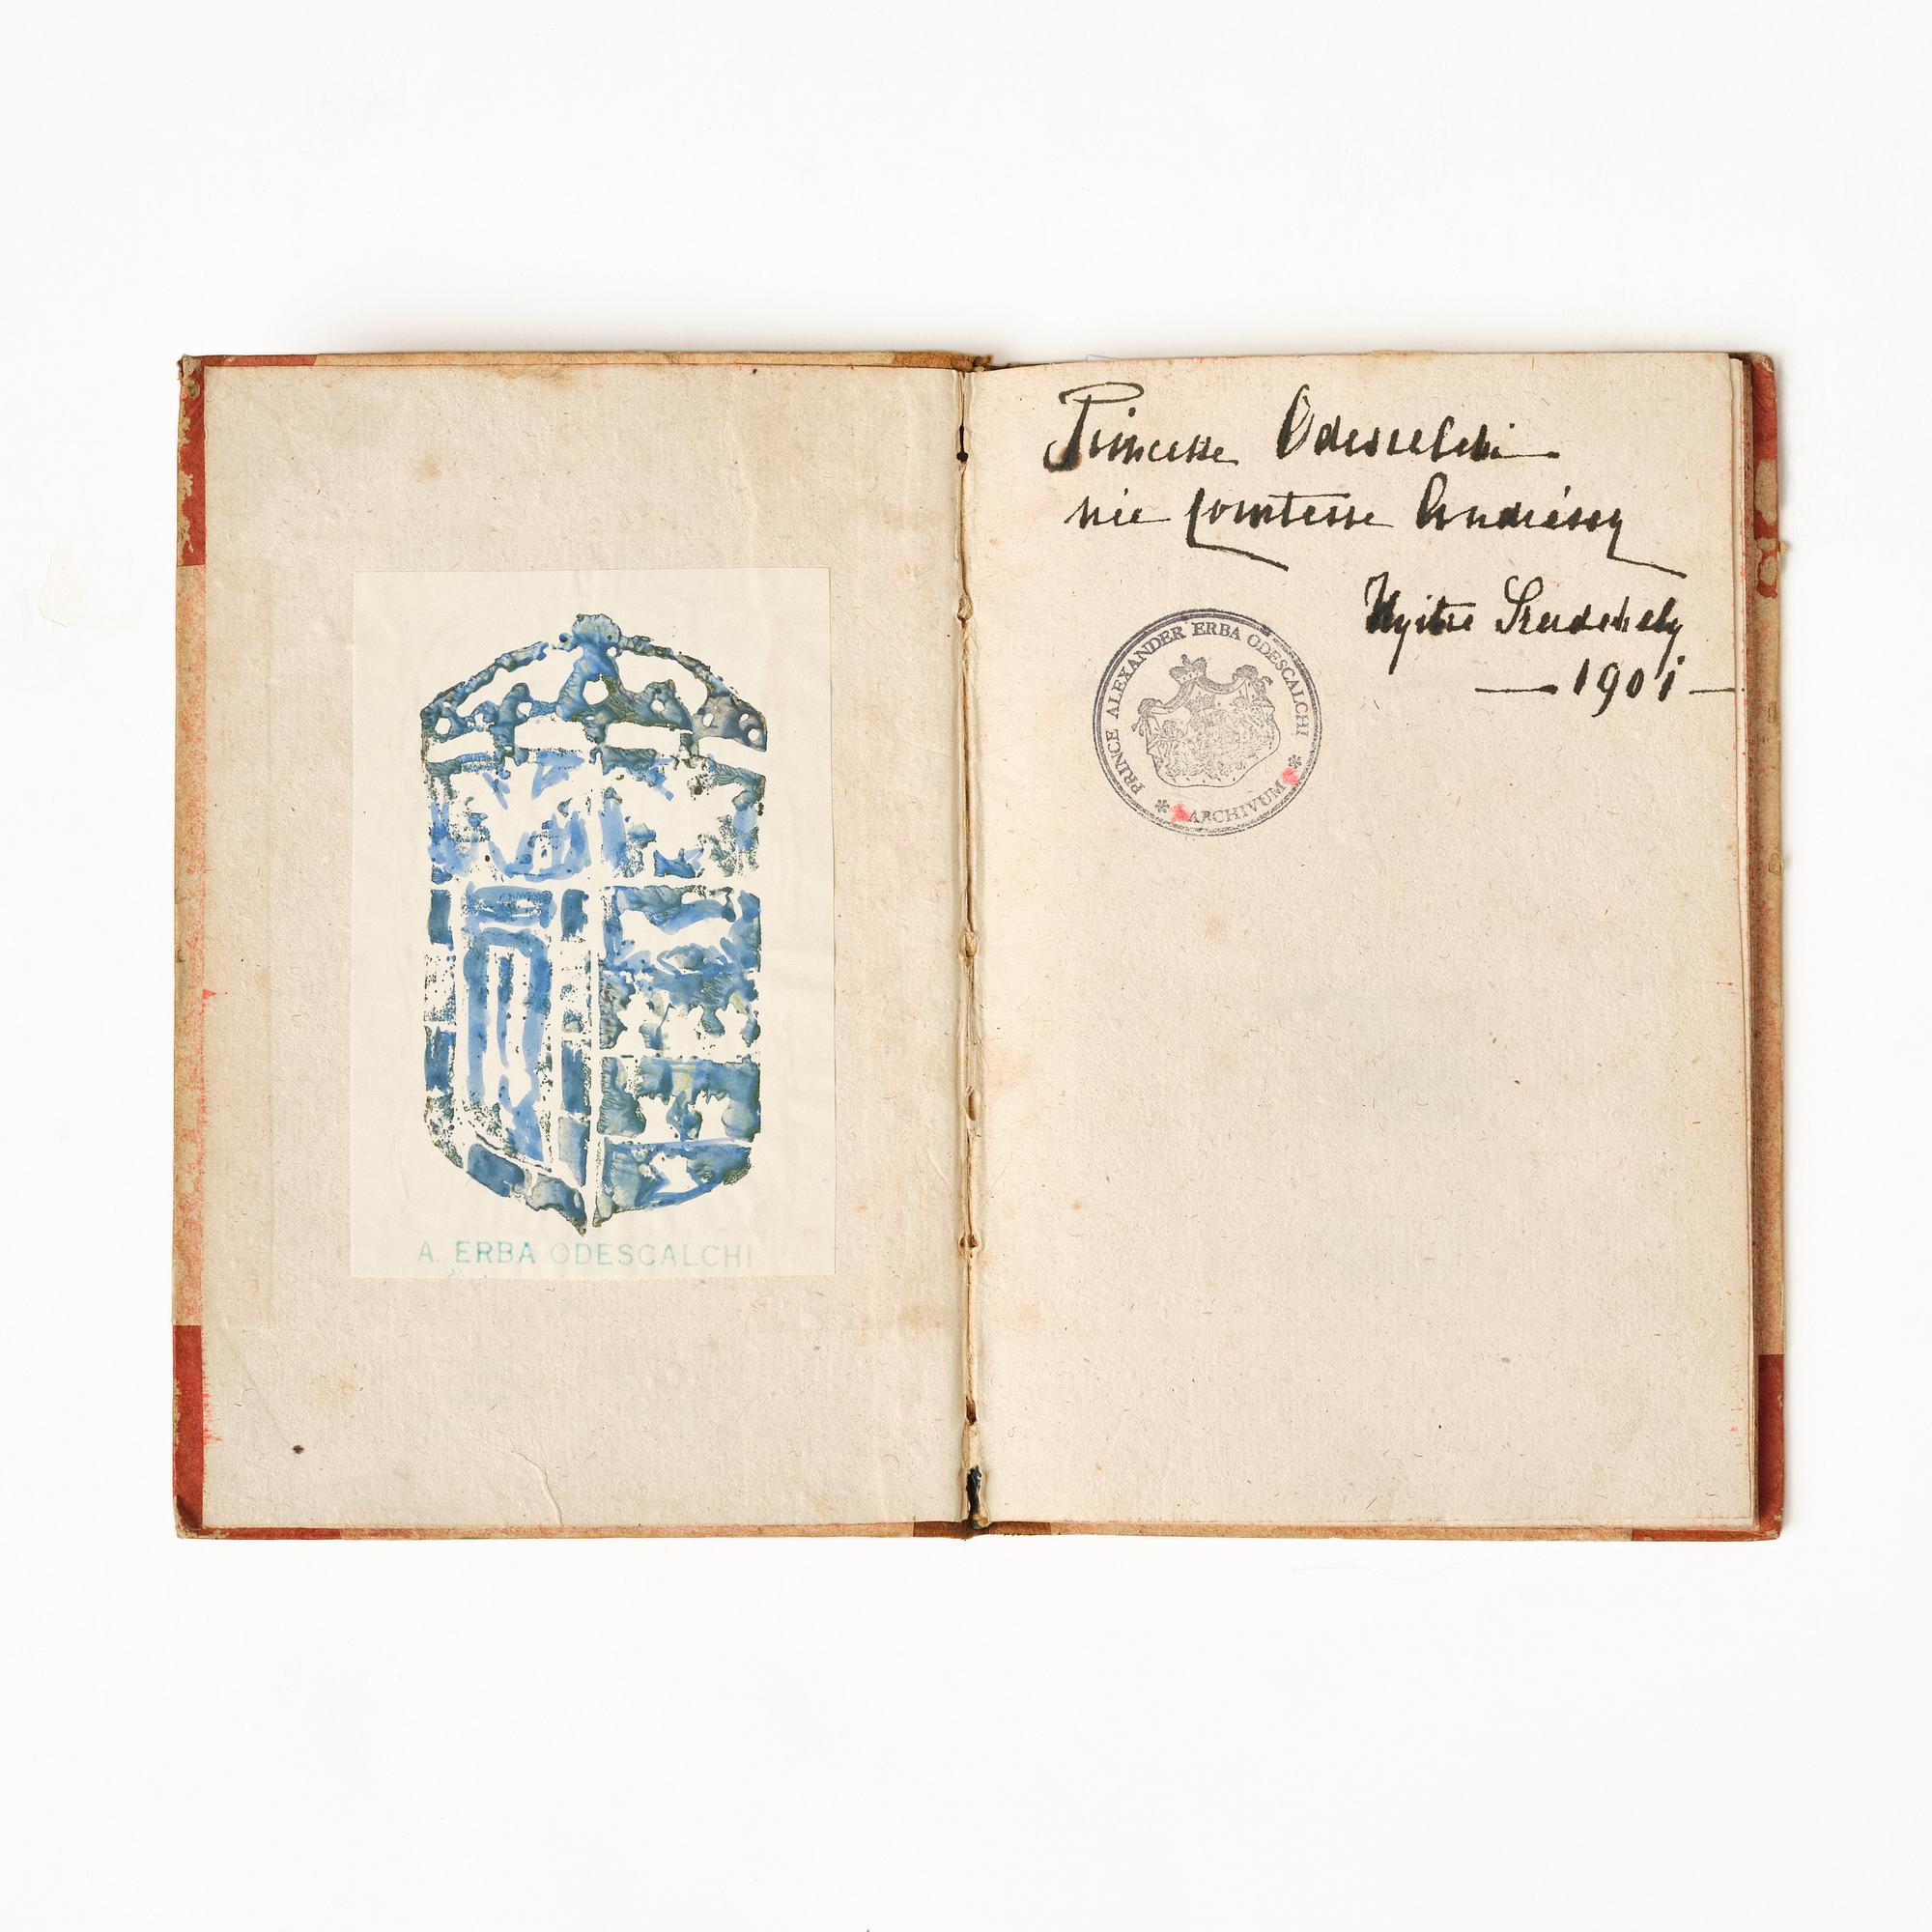 A. ERBA ODESCALCHI
Princesse Odescalchi
née Comtesse Andrássy
Nyitra
1901
PRINCE ALEXANDER ERBA ODESCALCHI
* ARCHIVUM *